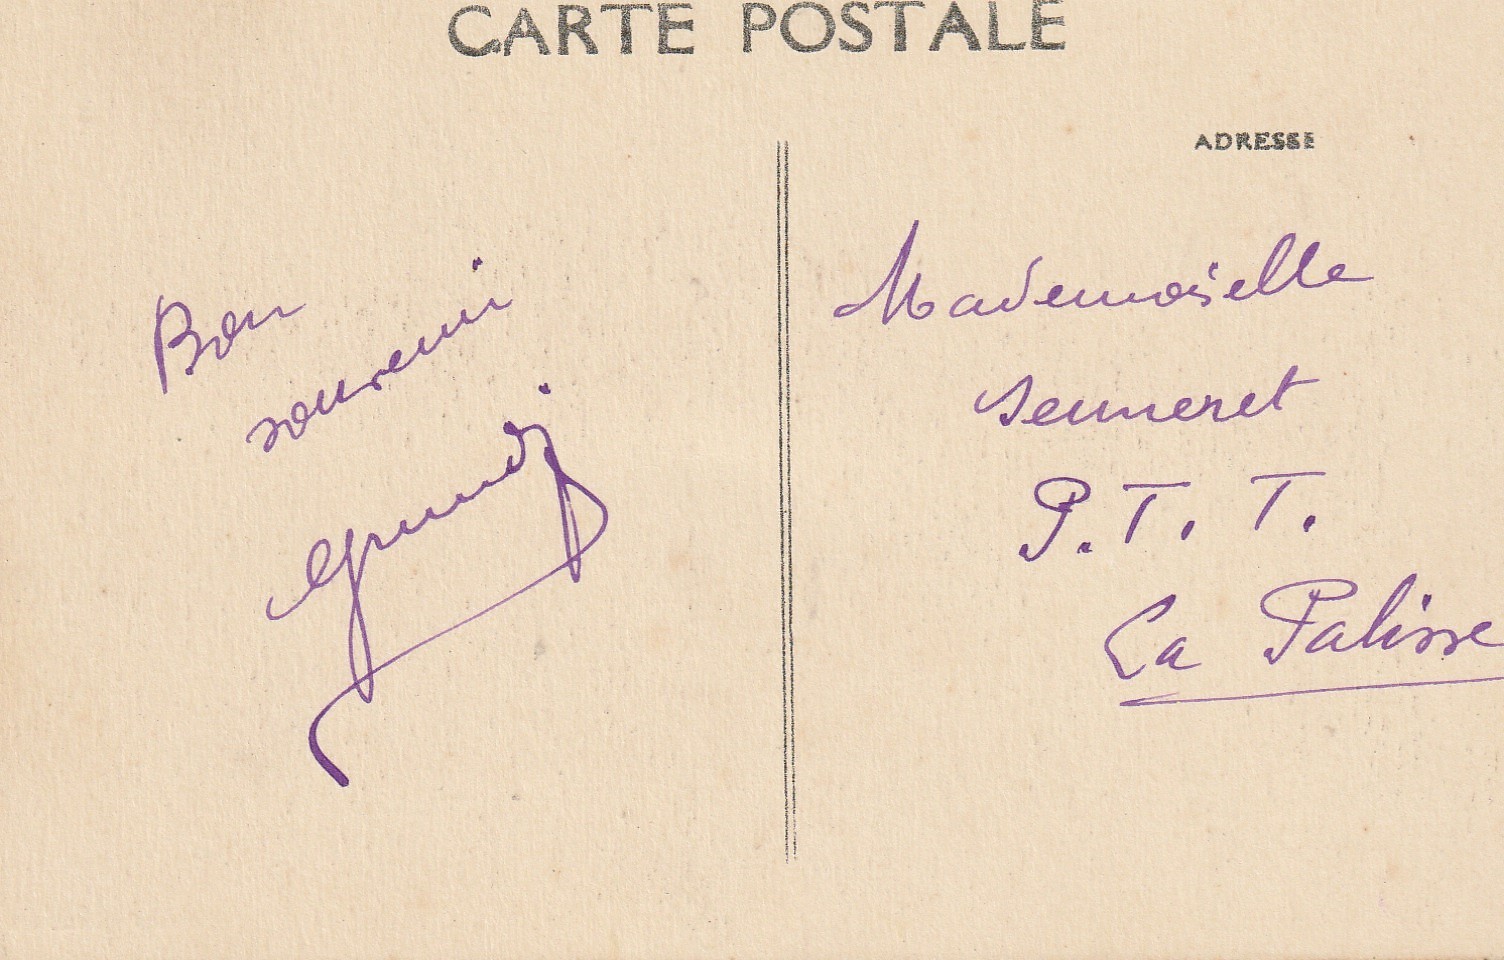 CARTE POSTALE
ADRESSE
Bon
souvenir
Mademoiselle
P. T. T.
La Palisse